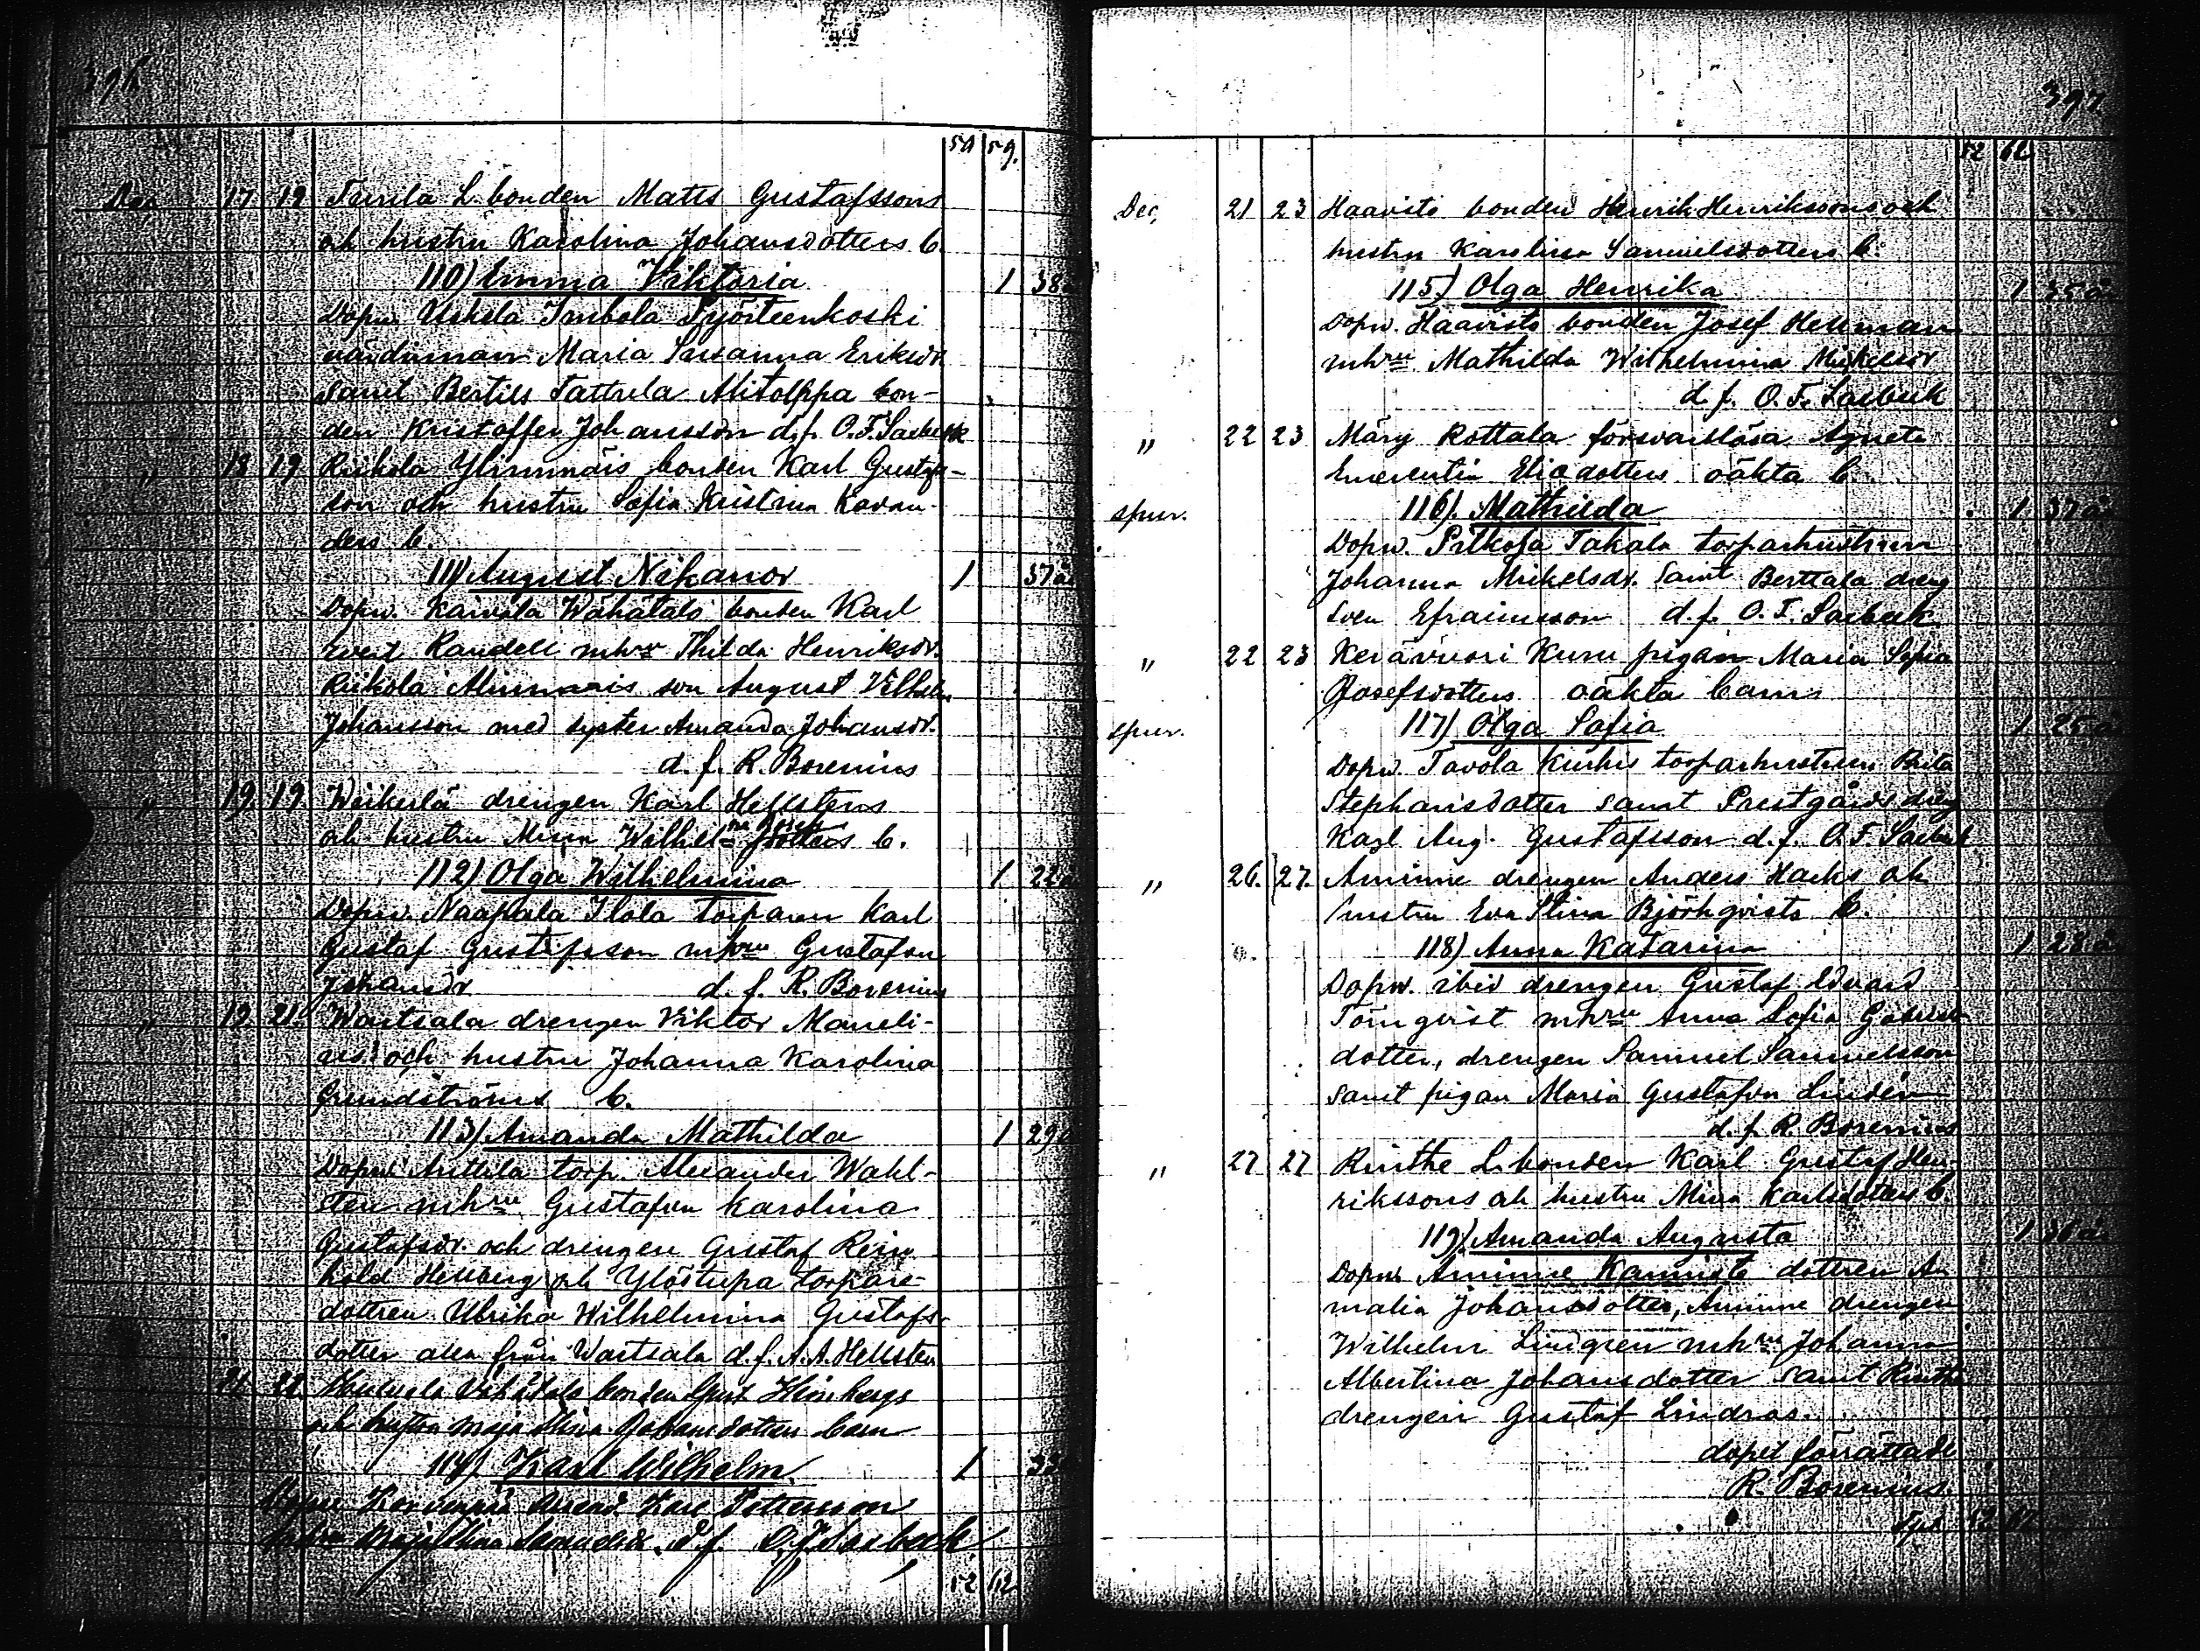 396
50 59.
Dec, 17. 19 Turila L. bonden Matts Gustafssons
och hustru Karolina Johansdotters b.
110) Emma Viktoria 1 38
Dopv. Uskela Inkola Pyösteenkoski
värdinnan Maria Susanna Eriksdr.
samt Bertils Tattula Alitolppa bon-
den Kristoffer Johansson d.f. O.F. Saxbeck
" 18 19 Riihola Ylinnnäis bonden Karl Gustafs-
son och hustru Sofia Kristina Karan-
ders b.
111) August Nikanor 1 37 år
Dopv. Kaivola Wähätalo bonden Karl
Evert Randell mhru Thilda Henriksdr.
Riihola Alinnnäis son August Vilhelm
Johansson med syster Amanda Johansdr.
d. f. R. Borenius
" 19. 19. Wiikerlä drengen Karl Hellstens
och hustru Mina Wilhel-na dotters b.
112) Olga Wilhelmina 1 22
Dopv. Naapala Ilola torparen Karl
Gustaf Gustafsson mhru Gustafva
Johansdr. d. f. R. Borenius
" 19 21. Wartsala drengen Viktor Maneli-
us och hustru Johanna Karolina
Grundströms b.
113) Amanda Mathilda 1 29
Dopv. Anttila torp. Alexander Wahl-
sten mhru Gustafva Karolina
Gustafsdr. och drengen Gustaf Rein-
hold Hellberg och Ylöstupa torpare-
dottren Ulrika Wilhelmina Gustafs-
dotter alla från Wartsala d.f. A.A. Hellsten
21 22 Vähätalo bonden Heinbergs
och hustru Maja Stina Johansdotters barn
114) Karl Wilhelm. 1 33
Dopv. bonden Karl Petterson
mhru Maja Stina Samuelsdr. D.f. O.F. Saxbäck
52 62
397
52 62
Dec, 21 23 Haavisto bonden Henrik Henrikssons och
hustru Karolina Samuelsdotters b.
115) Olga Henrika 1 35 år
Dopv. Haavisto bonden Josef Hellman
mhru Mathilda Wilhelmina Mikelsdr
d. f. O. F. Saxbeck
" 22 23 Märy Kottala försvarslösa Agneta
Emerentia Eliedotters oäkta b.
spur. 116). Mathilda 1 37 år
Dopv. Pitkoja Takala torparhustrun
Johanna Mikelsdr. samt Berttala dreng
Sven Efraimsson d. f. O. F. Saxbeck
" 22 23 Kerävuori Kuru pigan Maria Sofia
Josefsdotters oäkta barns
spur. 117) Olga Sofia 1 25 år
Dopv. Tavola Kurkis torparhustrun Brita
Stephansdotter samt Prestgårds dreng
Karl Aug. Gustafsson d. f. O. F. Saxbeck
" 26. 27. Aminne drengen Anders Hacks och
hustru Eva Stina Björkqvists b.
118) Anna Katarina 1 28 år
Dopv. ibid drengen Gustaf Edvard
Törnqvist mhru Anna Sofia Gabriels
dotter, drengen Samuel Samuelsson
samt pigan Maria Gustafva Lindén
d. f. R. Borenius
" 27 27 Rinthe L. bonden Karl Gustaf Hen-
rikssons och hustru Mina Karlsdotters b.
119). Amanda Augusta 1 36 år
Dopv. Aminne Kamnist dottren A-
malia Johansdotter, Aminne drengen
Wilhelm Lindgren mhru Johanna
Albertina Johansdotter samt Rinthe
drengen Gustaf Lindros.
dopet förrättade
R. Borenius.
52 67